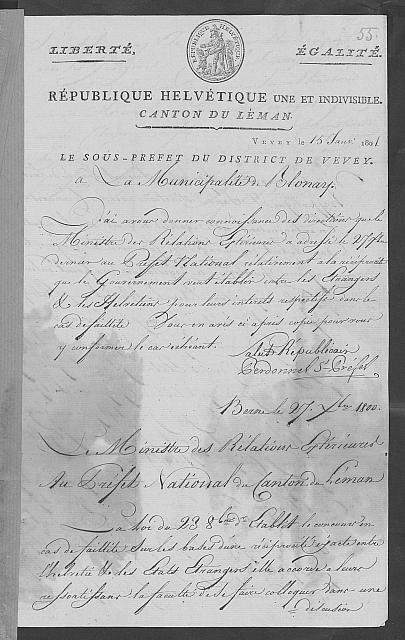 55.
LIBERTÉ,
ÉGALITÉ.
RÉPUBLIQUE HELVÉTIQUE UNE ET INDIVISIBLE.
CANTON DU LÉMAN.
VEVEY le 15 Janv 1801
LE SOUS-PREFET DU DISTRICT DE VEVEY.
a La Municipalité de Blonay.
J'ai a vous donner connoissance des directions que le
Ministre des Relations Extérieures a adressé le 27 Xbre
dernier au Préfet National relativement a la réciprocité
que le Gouvernement veut établir entre les Etrangers
& les Helvetiens pour leurs interets respectifs dans le
cas de faillite Vous en avés ci après copie pour vous
y conformer le cas échéant.
Salut Républicain
Perdonnet Ss Préfet
Berne le 27. Xbre 1800.
Le Ministre des Rélations Extérieures
Au Préfet National du Canton du Léman
La loi du 23 8bre Etablit le concours en
cas de faillite sur les bases d'une réciprocité exacte entre
l'helvetie & les Etats Etrangers elle accorde a leurs
ressortissans la faculté de se faire colloquer dans une
discussion